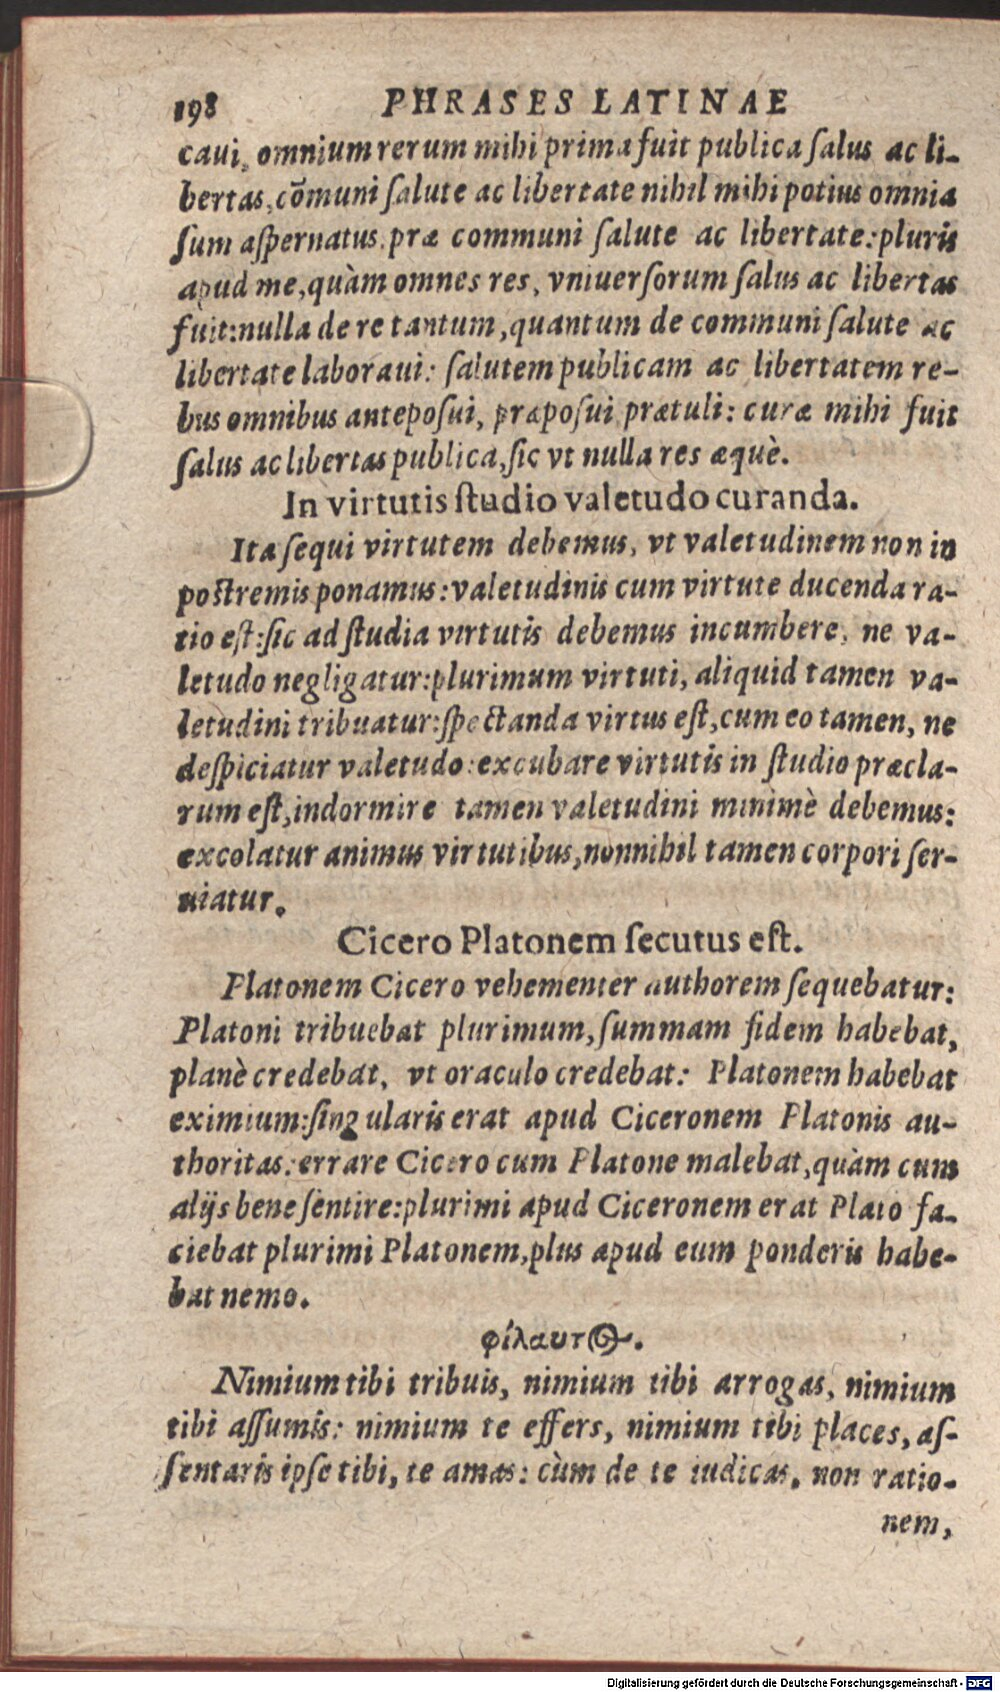 198 PHRASES LATINAE
caui, omnium rerum mihi prima fuit publica ſalus ac li-
bertas, cōmuni ſalute ac libertate nihil mihi potius omnia
ſum aſpernatus præ communi ſalute ac libertate: pluris
apud me, quàm omnes res, vniuerſorum ſalus ac libertas
fuit: nulla de re tantum, quantum de communi ſalute ac
libertate laboraui: ſalutem publicam ac libertatem re-
bus omnibus antepoſui, præpoſui prætuli: curæ mihi fuit
ſalus ac libertas publica, ſic vt nulla res æquè.
In virtutis ſtudio valetudo curanda.
Ita ſequi virtutem debemus, vt valetudinem non in
poſtremis ponamus: valetudinis cum virtute ducenda ra-
tio eſt: ſic ad ſtudia virtutis debemus incumbere, ne va-
letudo negligatur: plurimum virtuti, aliquid tamen va-
letudini tribuatur: ſpectanda virtus eſt, cum eo tamen, ne
deſpiciatur valetudo: excubare virtutis in ſtudio præcla-
rum eſt, indormire tamen valetudini minimè debemus:
excolatur animus virtutibus, nonnihil tamen corpori ſer-
uiatur.
Cicero Platonem ſecutus eſt.
Platonem Cicero vehementer authorem ſequebatur:
Platoni tribuebat plurimum, ſummam fidem habebat,
planè credebat, vt oraculo credebat: Platonem habebat
eximium: ſingularis erat apud Ciceronem Platonis au-
thoritas: errare Cicero cum Platone malebat, quàm cum
alijs bene ſentire: plurimi apud Ciceronem erat Plato fa-
ciebat plurimi Platonem, plus apud eum ponderis habe-
bat nemo.
φίλαυτος.
Nimium tibi tribuis, nimium tibi arrogas, nimium
tibi aſſumis: nimium te effers, nimium tibi places, aſ-
ſentaris ipſe tibi, te amas: cùm de te iudicas, non ratio-
nem,
Digitalisierung gefördert durch die Deutsche Forschungsgemeinschaft - DFG